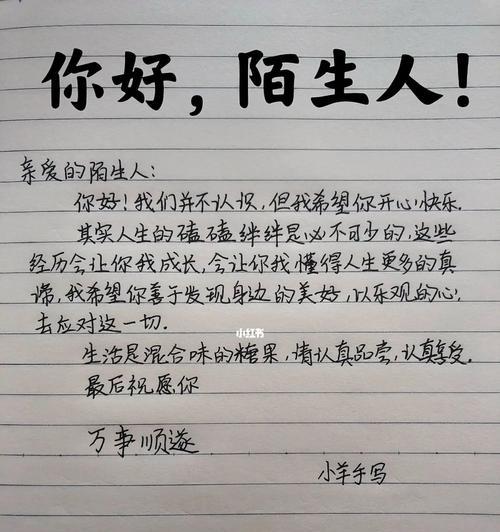 你好，陌生人！
亲爱的陌生人：
你好！我们并不认识，但我希望你开心快乐.
其实人生的磕磕绊绊是必不可少的，这些
经历会让你我成长，会让你我懂得人生更多的真
谛，我希望你善于发现身边的美好，以乐观的心
去应对这一切.
小红书
生活是混合味的糖果，请认真品尝，认真享受.
最后祝愿你
万事顺遂
小羊手写